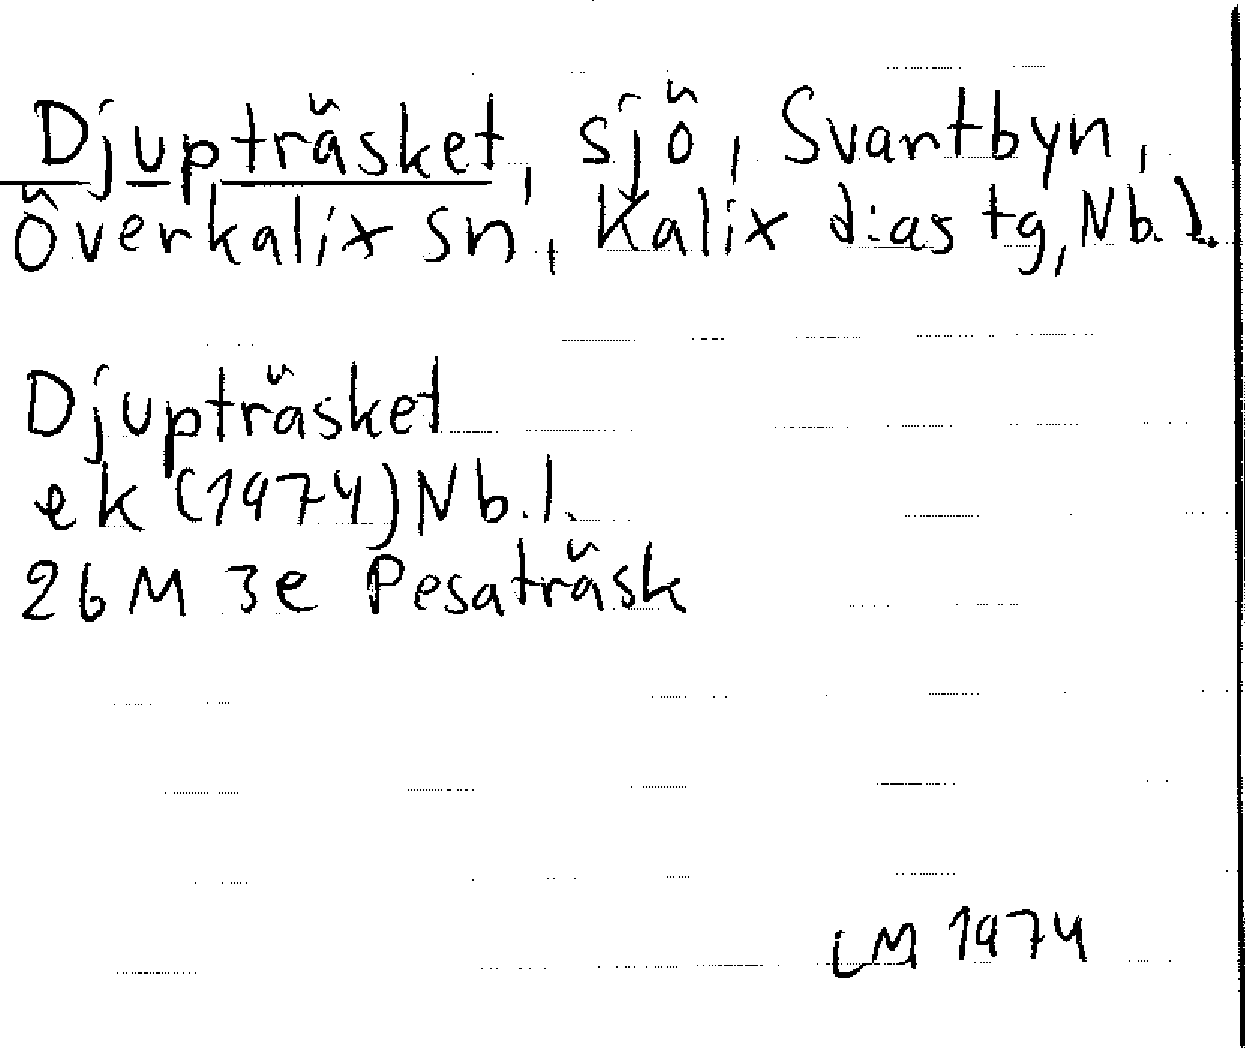 Djupträsket, sjö, Svartbyn,
Överkalix sn, Kalix d:as tg, Nb.l.
Djupträsket
ek (1974) Nb.l.
26 M 3e Pesaträsk
LM 1974